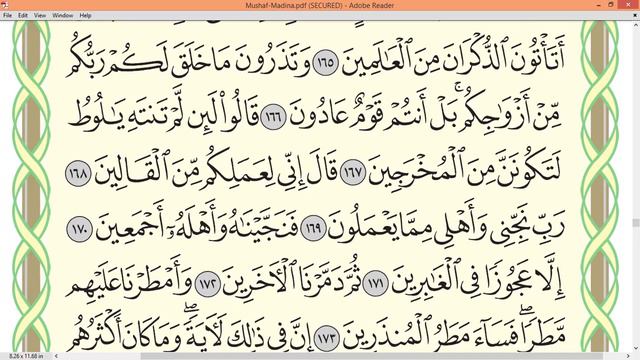 Mushaf-Madina.pdf (SECURED) - Adobe Reader
File Edit View Window Help
أَتَأْتُونَ ٱلذُّكْرَانَ مِنَ ٱلْعَٰلَمِينَ ١٦٥ وَتَذَرُونَ مَا خَلَقَ لَكُمْ رَبُّكُم
مِّنْ أَزْوَٰجِكُم ۚ بَلْ أَنتُمْ قَوْمٌ عَادُونَ ١٦٦ قَالُوا۟ لَئِن لَّمْ تَنتَهِ يَٰلُوطُ
لَتَكُونَنَّ مِنَ ٱلْمُخْرَجِينَ ١٦٧ قَالَ إِنِّى لِعَمَلِكُم مِّنَ ٱلْقَالِينَ ١٦٨
رَبِّ نَجِّنِى وَأَهْلِى مِمَّا يَعْمَلُونَ ١٦٩ فَنَجَّيْنَٰهُ وَأَهْلَهُۥٓ أَجْمَعِينَ ١٧٠
إِلَّا عَجُوزًا فِى ٱلْغَٰبِرِينَ ١٧١ ثُمَّ دَمَّرْنَا ٱلْءَاخَرِينَ ١٧٢ وَأَمْطَرْنَا عَلَيْهِم
مَّطَرًا ۖ فَسَآءَ مَطَرُ ٱلْمُنذَرِينَ ١٧٣ إِنَّ فِى ذَٰلِكَ لَءَايَةً ۖ وَمَا كَانَ أَكْثَرُهُم
8.26 x 11.68 in